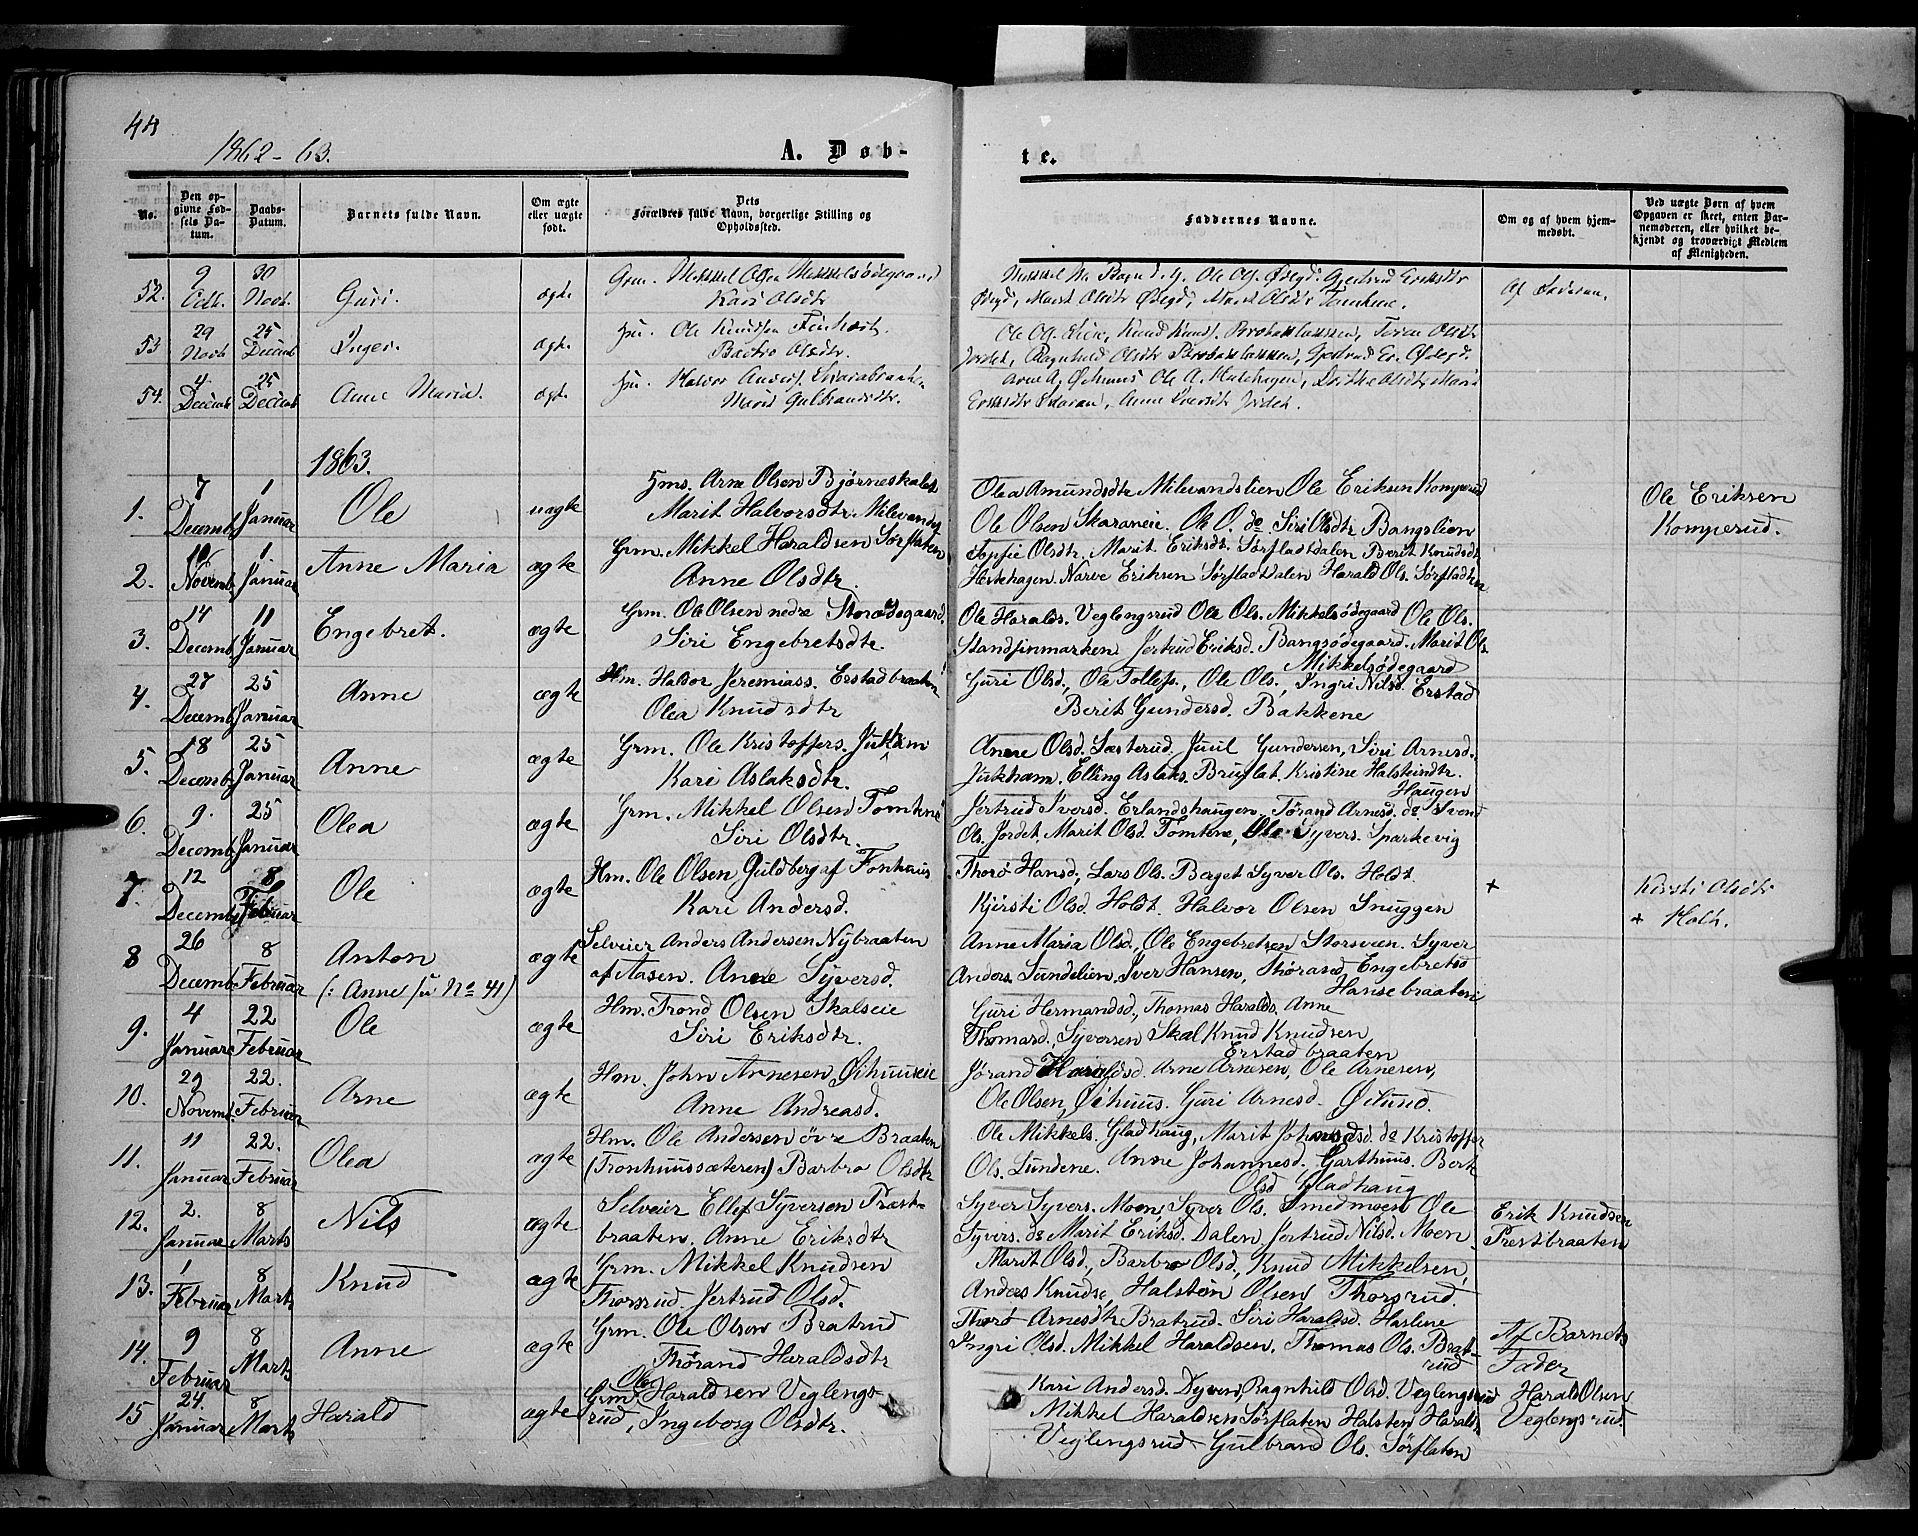 44
1862-63.
A. Døb-
te.
No.
Den opgivne Fødsels Datum.
Daabs-Datum.
Barnets fulde Navn.
Om ægte eller uægte født.
Dets Forældres fulde Navn, borgerlige Stilling og Opholdssted.
Faddernes Navne.
Om og af hvem hjemmedøbt.
Ved uægte Børn af hvem Opgaven er skeet, enten Barnemoderen, eller hvilket bekjendt og troværdigt Medlem af Menigheden.
52. 9 Octb. 30 Novb. Guri. ægte Grm. Mikkel Olsen Mikkelsødegaard
Kari Olsdtr
Gjertrud Eriksdtr
Ødegd, Marit Olsdtr Ødegd, Marit Olsdr Tomtene.
53 29 Novb 25 Decemb Inger. ægte Hu. Ole Knudsen
Barbro Olsdtr.
Ragnhild Olsdtr
54. 4 Decemb 25 Decemb Anne Maria. ægte Hu. Halvor Anders.
Marit Gulbrandsdtr.
Arne A. Øihuus Ole A.
Eriksdtr Skaran, Anne Iversdtr Jordet.
1863.
1. 7 Decemb. 1 Januar Ole uægte Hms. Arne Olsen Bjørneskalet
Marit Halvorsdtr. Milevandsl
Olea Amundsdtr Milevandslien Ole Eriksen Komperud
Ole Olsen Skaraneie. Ole O. do Siri Olsdtr Bangslien
Ole Eriksen
Komperud.
2. 10 Novemb. 1 Januar Anne Maria ægte Grm. Mikkel Haraldsen Sørflaten
Anne Olsdtr.
Sopfie Olsdtr. Marit Eriksdt. Sørfladtdalen Berit Knudsdt
Hestehagen. Narve Eriksen Sørfladtdalen Harald Ols. Sørfladten
3. 14 Decemb. 11 Januar Engebret. ægte Grm. Ole Olsen nedre Storødegaard
Siri Engebretsdtr.
Ole Haralds. Veglengsrud Ole Ols. Mikkelsødegaard Ole Ols.
Strandfinmarken Jertrud Eriksd. Bangsødegaard. Marit Ols.
Mikkelsødegaard
4. 27 Decemb. 25 Januar Anne ægte Hm. Halvor Jeremiass. Erstadbraaten
Olea Knudsdtr
Guri Olsd., Ole Tollefs., Ole Ols., Ingri Nilsd. Erstad
Berit Gundersd. Bakkene
5. 18 Decemb. 25 Januar Anne ægte Grm. Ole Kristoffers. Jukam
Kari Aslaksdtr.
Anne Olsd. Sæterud. Juul Gundersen, Siri Arnesd.
Jukham. Elling Aslaks. Bruflat. Kristine Halsteindtr.
Haugen
6. 9. Decemb. 25 Januar Olea ægte Grm. Mikkel Olsen Tomtene
Siri Olsdtr.
Jertrud Iversd. Erlandshaugen, Tørand Arnesd. do Svend
Ols. Jordet. Marit Olsd. Tomtene, Ole Syvers. Sparkevig
7. 12 Decemb. 8 Februar Ole ægte Hm. Ole Olsen Guldberg af Fønhuus
Kari Andersd.
Thorø Hansd., Lars Ols. Berget Syver Ols. Holdt
Kjersti Olsd. Holdt. Halvor Olsen Snuggen
+
Kirsti Olsdtr
+ Holt.
8 26 Decemb. 8 Februar Anton ægte Selveier Anders Andersen Nybraaten
(: Anne fu No 41) af Aasen. Anne Syversd.
Anne Maria Olsd., Ole Engebretsen Storsveen. Syver
Anders. Sundelien, Iver Hansen, Thørand Engebretsd
Hansebraaten
9. 4 Januar 22 Februar Ole ægte Hm. Trond Olsen Skalseie
Siri Eriksdtr.
Guri Hermandsd., Thomas Haralds. Anne
Thomasd., Syversen Skal Knud Knudsen
Erstadbraaten
10. 29 Novemb. 22. Februar Arne ægte Hm. John Arnesen Øihuuseie
Anne Andreasd.
Jørand Haraldsd. Arne Arnesen, Ole Arnesen,
Ole Olsen, Øihuus. Guri Arnesd. Øilund.
11. 11 Januar 22. Februar Olea ægte Hm. Ole Andersen øvre Braaten
(Fronhuussæteren) Barbro Olsdtr
Ole Mikkels. Gladhaug, Marit Johannesd. do Kristoffer
Ols. Lundene. Anne Johannesd. Garthuus. Berit
Olsd Gladhaug
12. 2. Januar 8 Marts Nils ægte Selveier Ellef Syversen Præst-
braaten. Anne Eriksdtr
Syver Syvers. Moen, Syver Ols. Smedmoen Ole
Syvers. do Marit Eriksd. Dalen. Jertrud Nilsd. Moen
Erik Knudsen
Prestbraaten
13. 1 Februar 8 Marts Knud ægte Grm. Mikkel Knudsen
Thorsrud. Jertrud Olsd.
Marit Olsd., Barbro Olsd., Knud Mikkelsen,
Anders Knudse, Halsten Olsen Thorsrud.
14. 9 Februar 8 Marts Anne ægte Grm. Ole Olsen Bratrud
Thørand Haraldsdtr
Thorø Arnesdtr Bratrud. Siri Haraldsd. Haslene
Ingri Olsd. Mikkel Haraldsen, Thomas Ols. Brat-
rud
Af Barnets
Fader
15 24. Januar 8 Marts Harald ægte Grm. Ole Haraldsen Veglengs-
rud, Ingeborg Olsdtr.
Kari Andersd. Dyven, Ragnhild Olsd. Veglengsrud
Mikkel Haraldsen Sørflaten Halsten Haralds.
Veglengsrud Gulbrand Ols. Sørflaten
Harald Olsen
Veglengsrud.